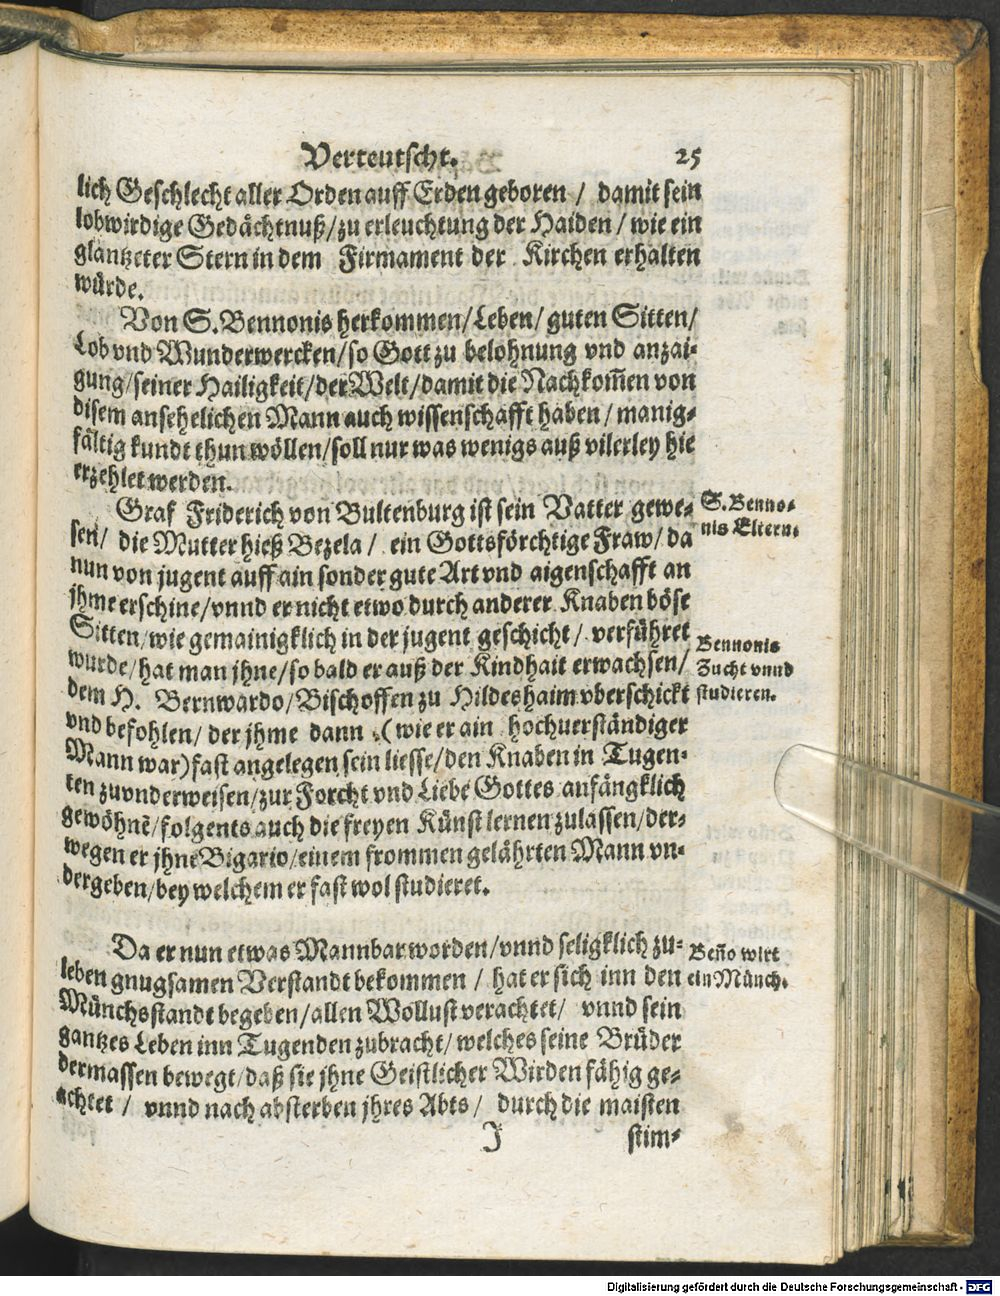 Verteutscht. 25
lich Geschlecht aller Orden auff Erden geboren / damit sein
lobwirdige Gedächtnuß/zu erleuchtung der Haiden / wie ein
glantzeter Stern in dem Firmament der Kirchen erhalten
würde.
Von S. Bennonis herkommen/Leben/ guten Sitten/
Lob vnd Wunderwercken/so Gott zu belohnung vnd anzai-
gung/seiner Hailigkeit/der Welt/damit die Nachkom̃en von
disem ansehelichen Mann auch wissenschafft haben / manig-
fältig kundt thun wöllen/soll nur was wenigs auß vilerley hie
erzehlet werden.
Graf Friderich von Bultenburg ist sein Vatter gewe-
sen/ die Mutter hieß Bezela / ein Gottsförchtige Fraw/ da
nun von jugent auff ain sonder gute Art vnd aigenschafft an
jhme erschine/vnnd er nicht etwo durch anderer Knaben böse
Sitten/wie gemainigklich in der jugent geschicht / verführet
wurde/hat man jhne/so bald er auß der Kindhait erwachsen/
dem H. Bernwardo/Bischoffen zu Hildeshaim vberschickt
vnd befohlen/ der jhme dann (wie er ain hochuerständiger
Mann war) fast angelegen sein liesse/den Knaben in Tugen-
ten zuvnderweisen/zur Forcht vnd Liebe Gottes anfängklich
gewöhnẽ/folgents auch die freyen Künst lernen zulassen/der-
wegen er jhne Bigario/einem frommen gelährten Mann vn-
dergeben/bey welchem er fast wol studieret.
S. Benno-
nis Eltern.
Bennonis
Zucht vnnd
studieren.
Da er nun etwas Mannbar worden/vnnd seligklich zu-
leben gnugsamen Verstandt bekommen / hat er sich inn den
Münchsstandt begeben/allen Wollust verachtet/ vnnd sein
gantzes Leben inn Tugenden zubracht/welches seine Brüder
dermassen bewegt/daß sie jhne Geistlicher Wirden fähig ge-
achtet / vnnd nach absterben jhres Abts / durch die maisten
Beño wirt
ein Münch.
J stim-
Digitalisierung gefördert durch die Deutsche Forschungsgemeinschaft - DFG